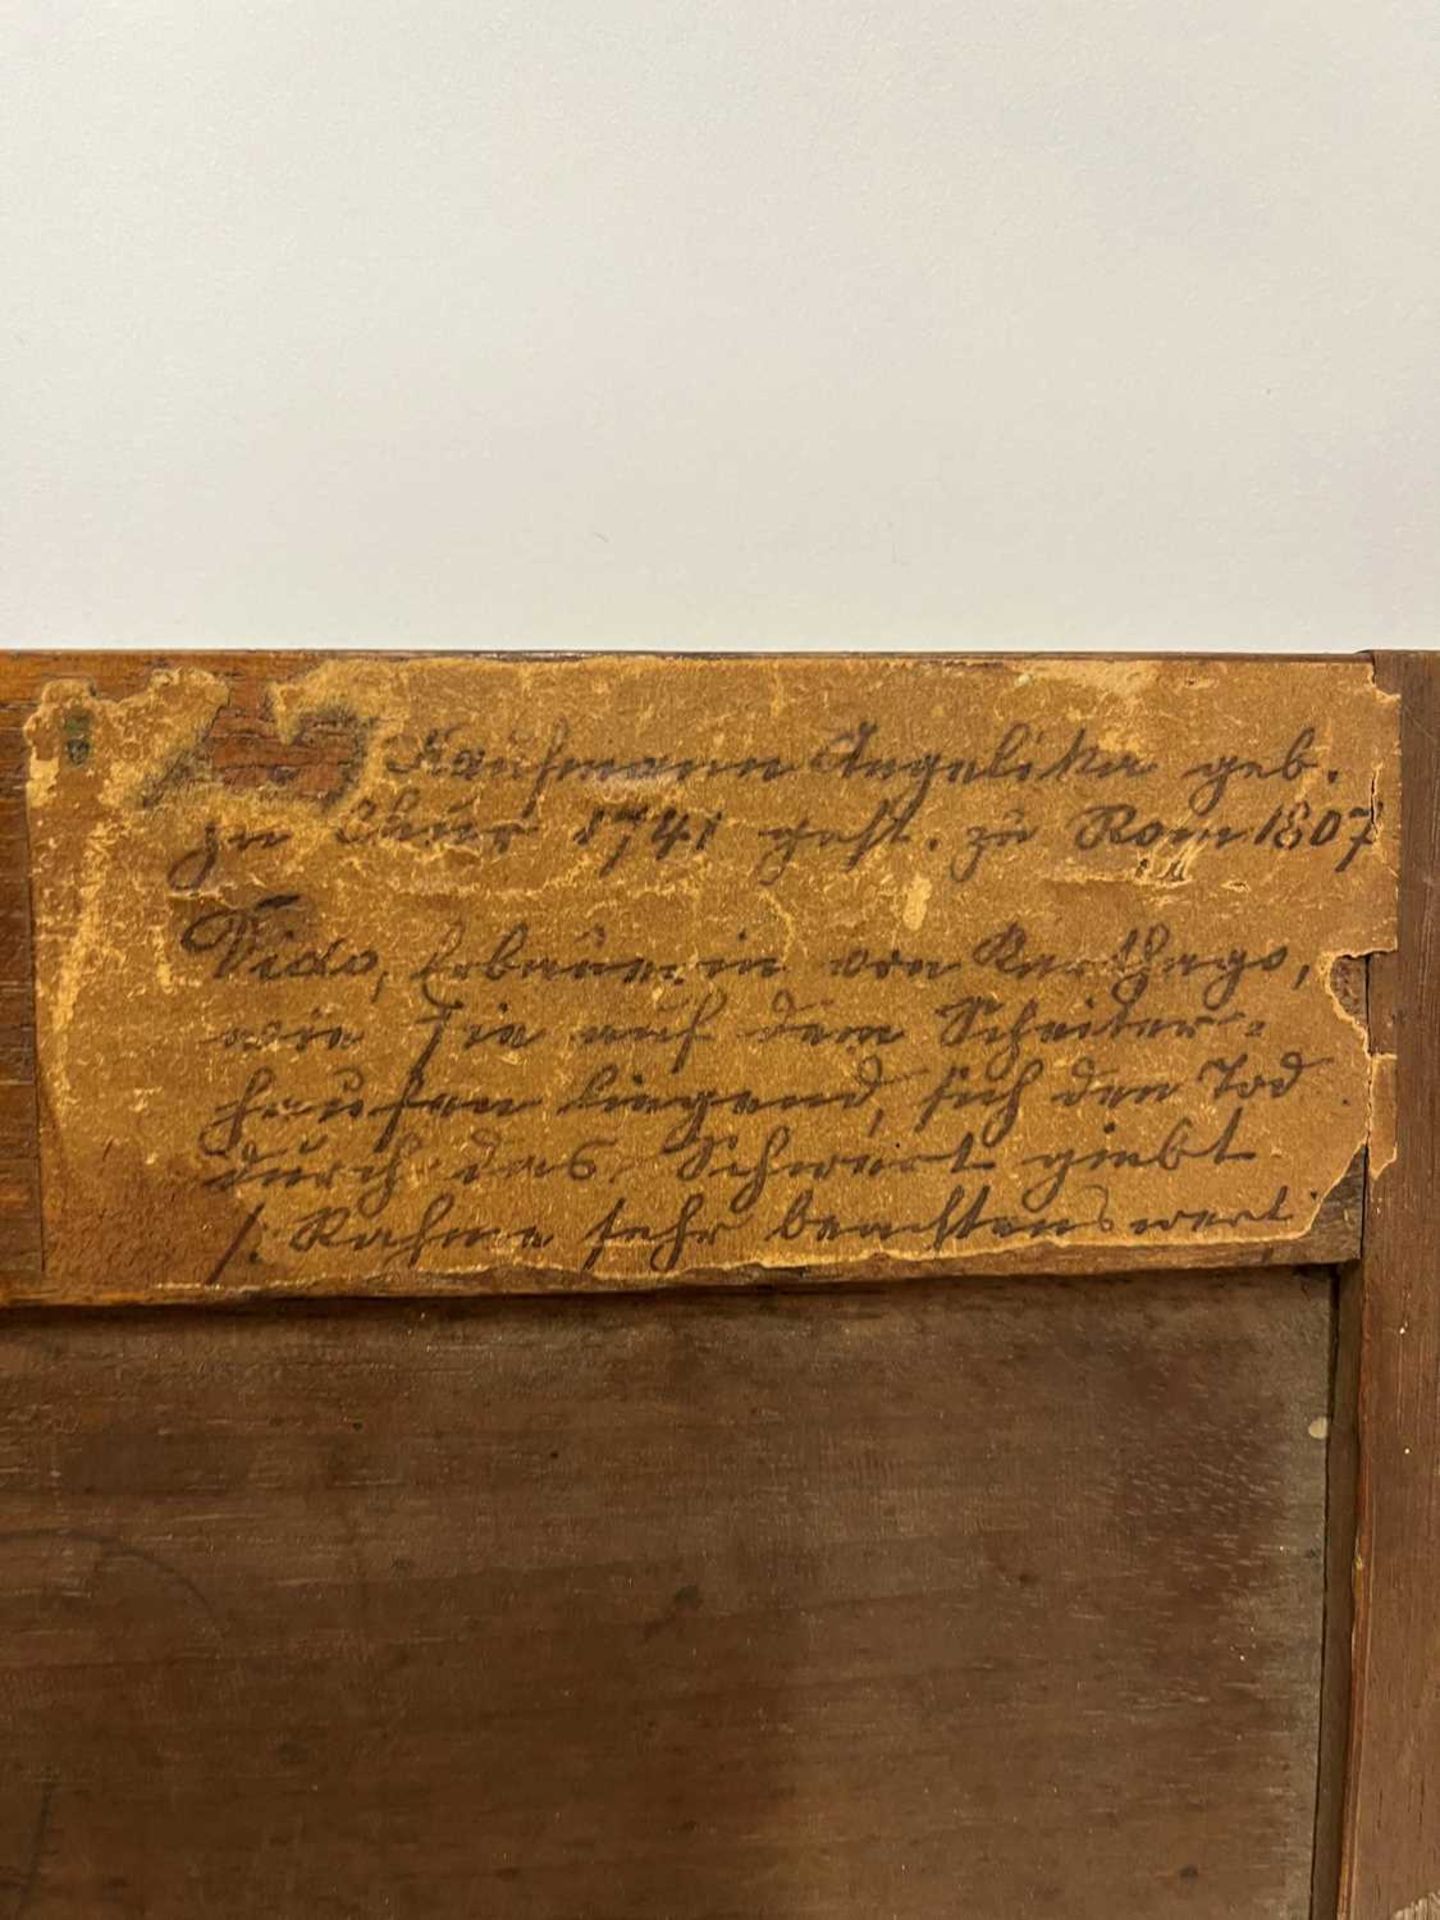 Kaufmann Angelika geb.
zu Chur 1741 gest. zu Rom 1807
Dido, Erbauerin von Karthago,
wie sie auf dem Scheiter-
haufen liegend, sich den Tod
durch das Schwert giebt
/. Rahme sehr beachtenswert